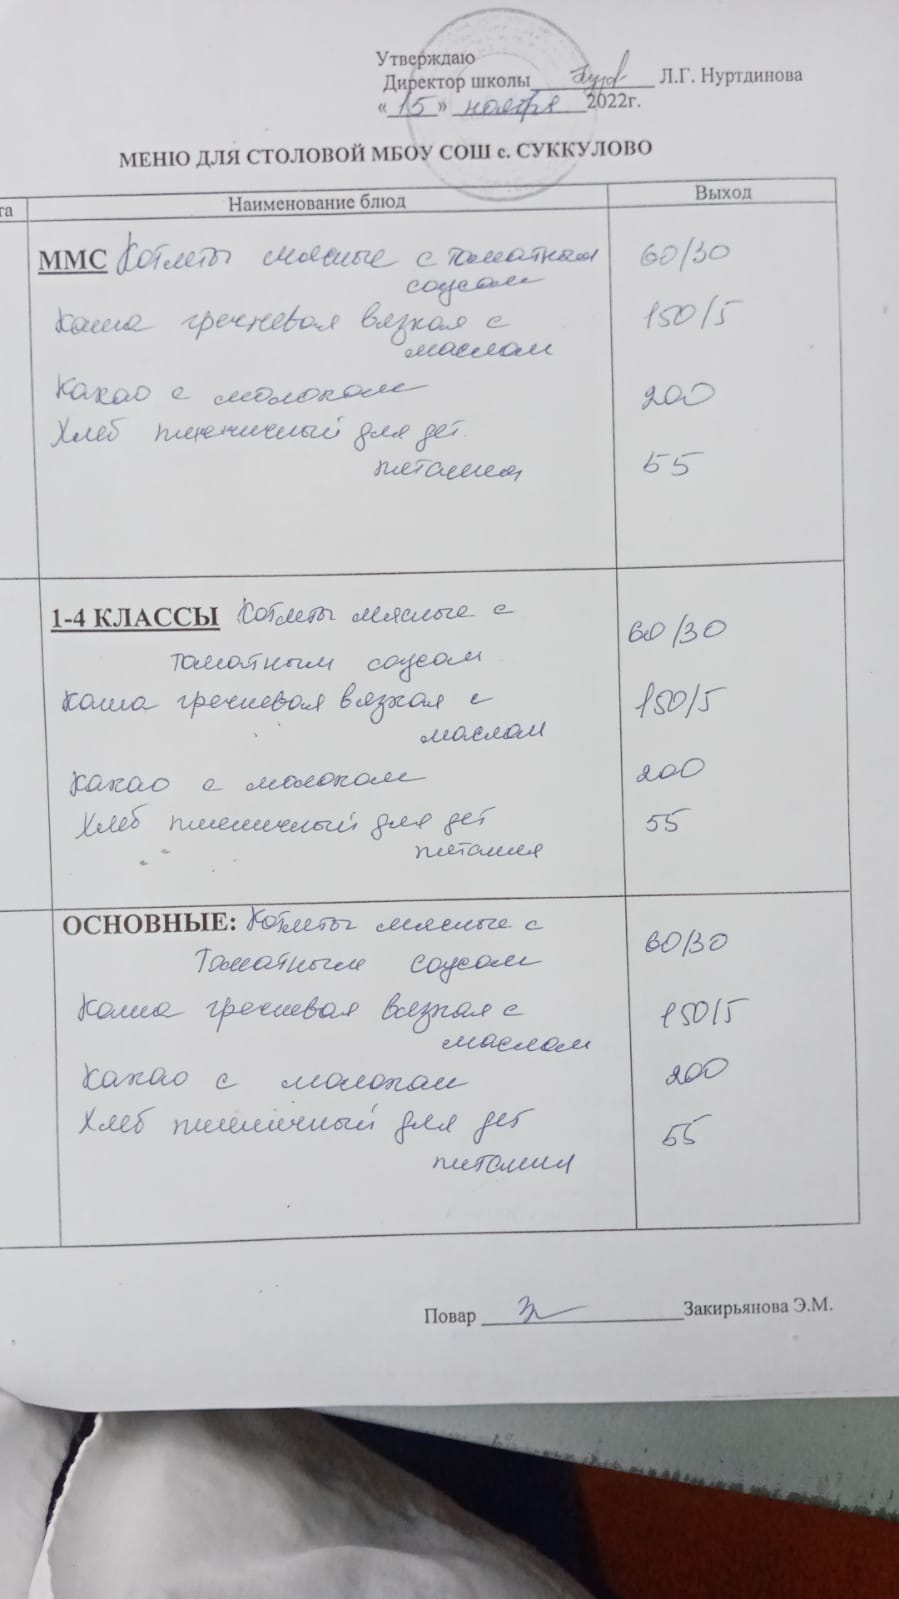 Утверждаю
Директор школы Л.Г. Нуртдинова
«15» ноября 2022г.
МЕНЮ ДЛЯ СТОЛОВОЙ МБОУ СОШ с. СУККУЛОВО
та Наименование блюд Выход
ММС Котлеты мясные с томатным 60/30
соусом
Каша гречневая вязкая с 150/5
маслом
Какао с молоком 200
Хлеб пшеничный для дет.
питания 55
1-4 КЛАССЫ Котлеты мясные с 60/30
томатным соусом
Каша гречневая вязкая с 150/5
маслом
Какао с молоком 200
Хлеб пшеничный для дет 55
питания
ОСНОВНЫЕ: Котлеты мясные с 60/30
Томатным соусом
Каша гречневая вязкая с 150/5
маслом
Какао с молоком 200
Хлеб пшеничный для дет 55
питания
Повар Закирьянова Э.М.